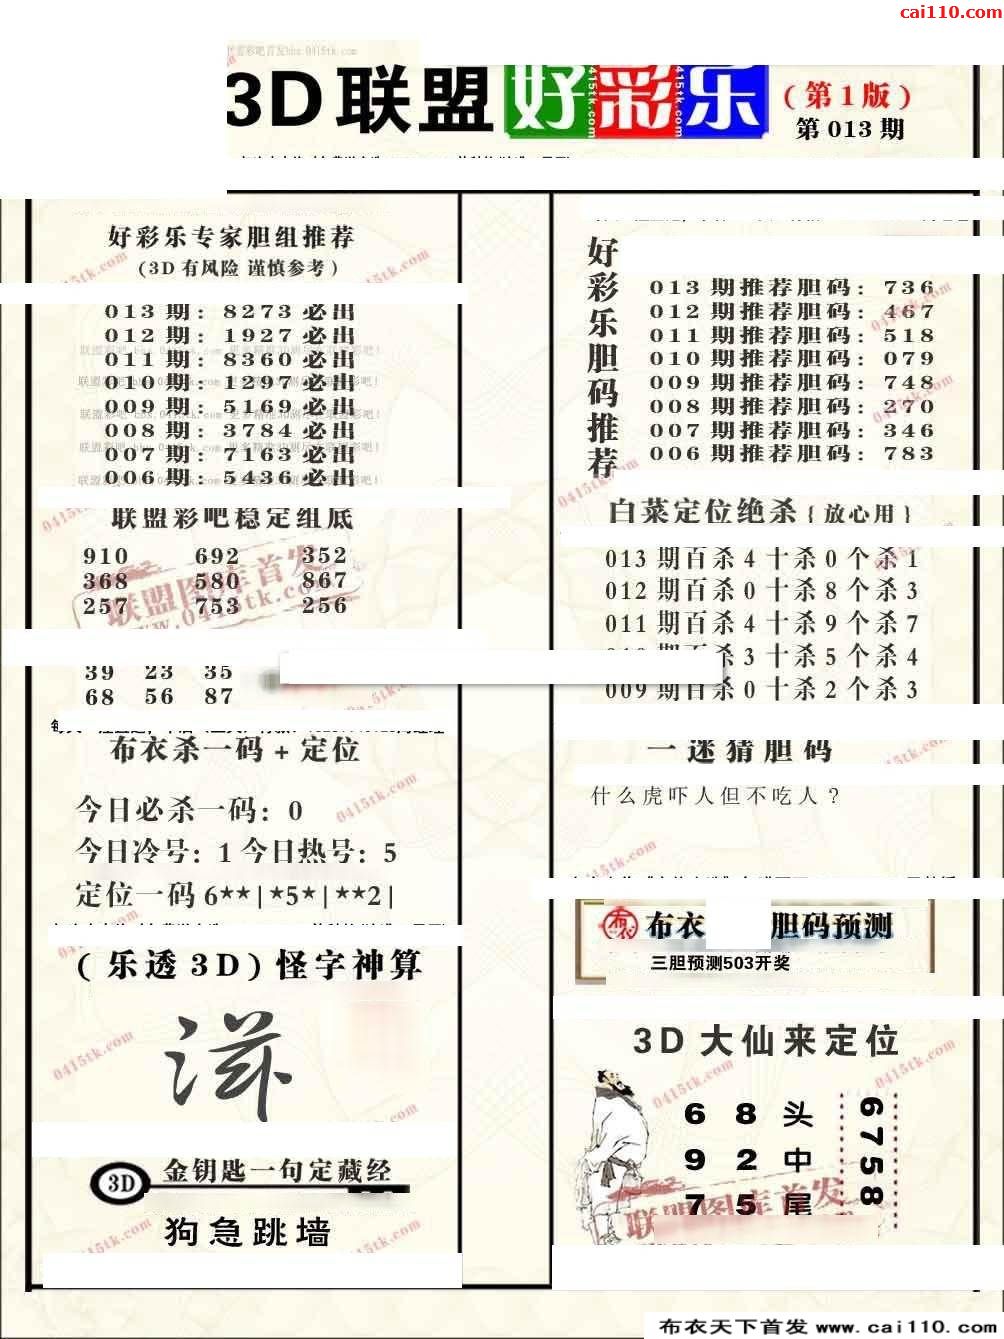 cai110.com
3D联盟好彩乐
(第1版)
第013期
好彩乐专家胆组推荐
(3D有风险 谨慎参考)
013期: 8273必出
012期: 1927必出
011期: 8360必出
010期: 1297必出
009期: 5169必出
008期: 3784必出
007期: 7163必出
006期: 5436必出
联盟彩吧稳定组底
910 692 352
368 580 867
257 753 256
39 23 35
68 56 87
布衣杀一码+定位
今日必杀一码: 0
今日冷号: 1 今日热号: 5
定位一码 6**|*5*|**2|
(乐透3D)怪字神算
3D 金钥匙一句定藏经
狗急跳墙
好彩乐胆码推荐
013期推荐胆码: 736
012期推荐胆码: 467
011期推荐胆码: 518
010期推荐胆码: 079
009期推荐胆码: 748
008期推荐胆码: 270
007期推荐胆码: 346
006期推荐胆码: 783
白菜定位绝杀{放心用}
013期百杀4十杀0个杀1
012期百杀0十杀8个杀3
011期百杀4十杀9个杀7
杀3十杀5个杀4
009期百杀0十杀2个杀3
一迷猜胆码
什么虎吓人但不吃人?
布衣 布衣 胆码预测
三胆预测503开奖
3D大仙来定位
6 8 头
9 2 中
7 5 尾
6758
联盟图库首发
0415tk.com
布衣天下首发 www.cai110.com